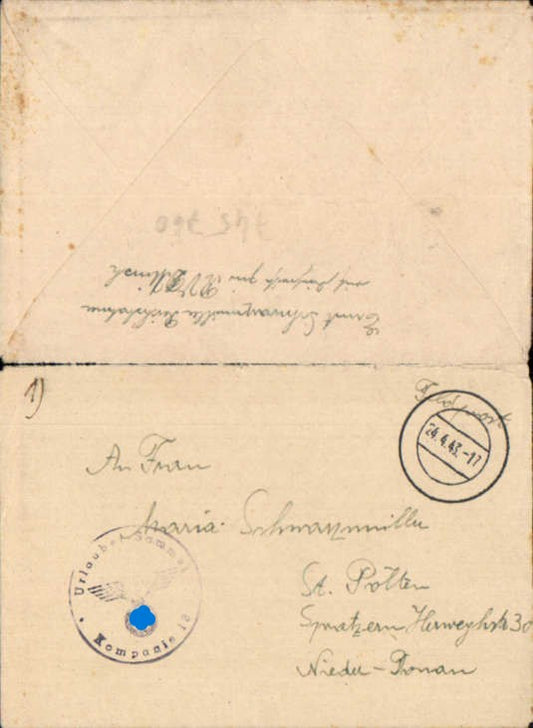 745 760
Ernst Schwarzmüller
1)
Feldpost
24.4.43.-17
An Frau
Maria Schwarzmüller
Urlauber Sammel
Kompanie 18
St. Pölten
Spratzern Herweghstr 30
Nieder-Donau